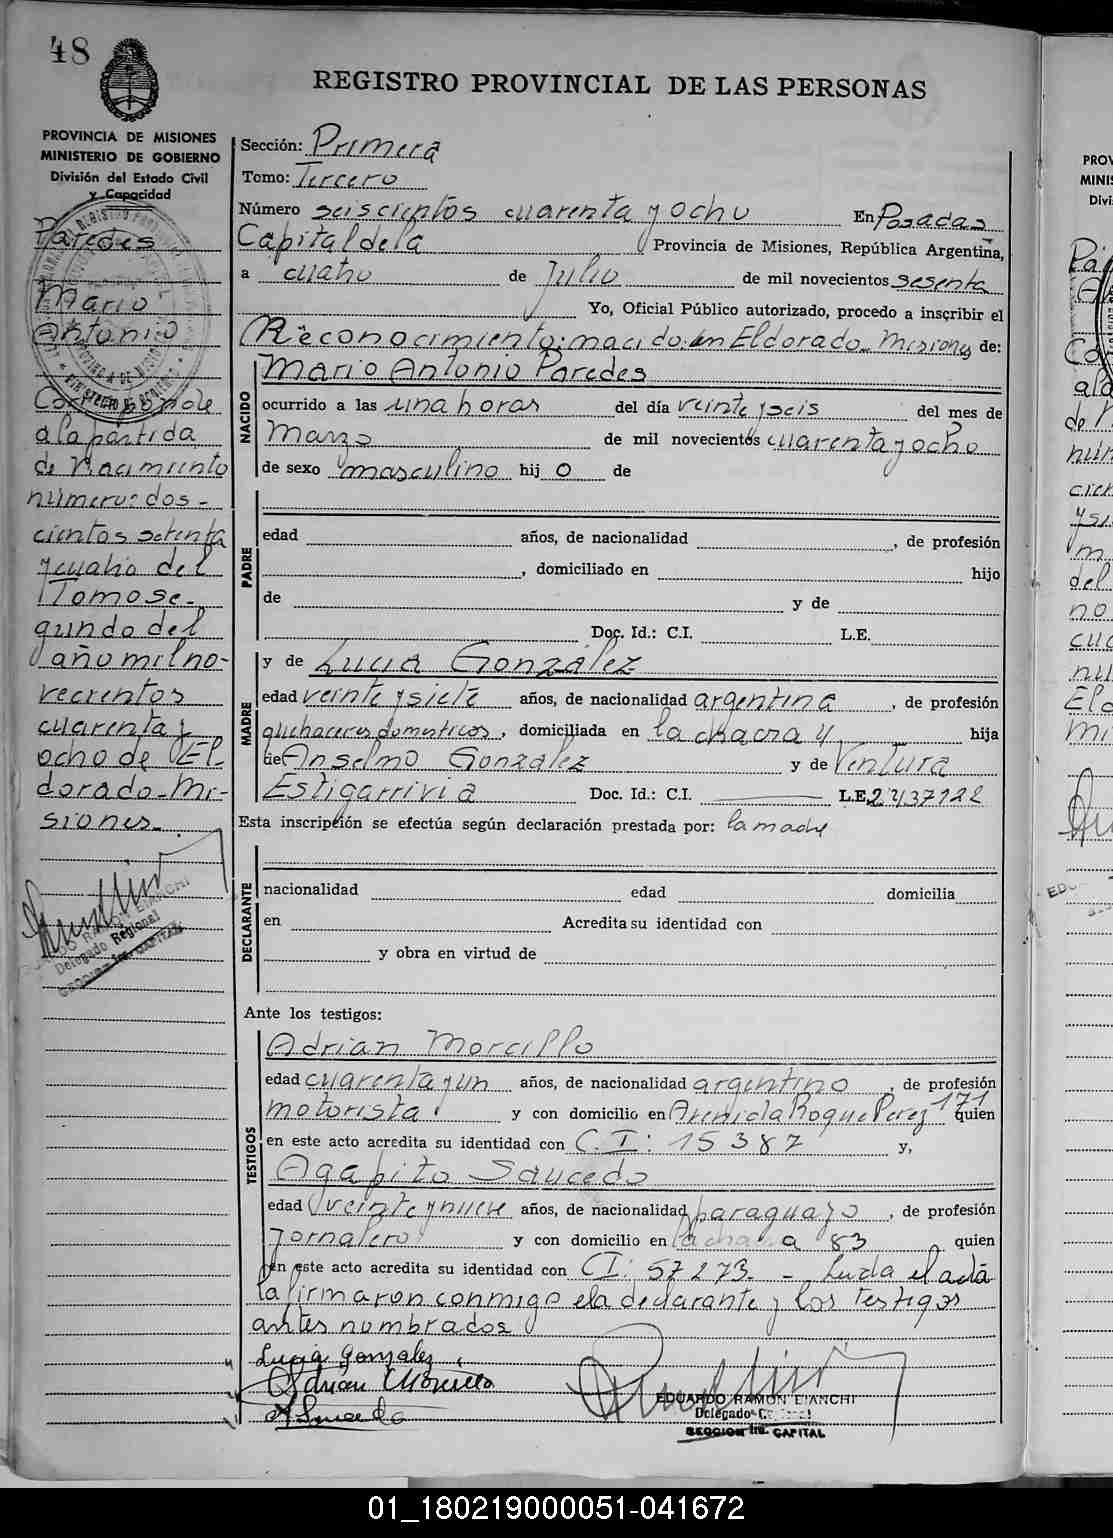 48
REGISTRO PROVINCIAL DE LAS PERSONAS
PROVINCIA DE MISIONES
MINISTERIO DE GOBIERNO
División del Estado Civil
y Capacidad
Paredes
Mario
Antonio
Corresponde
a la partida
de nacimiento
número: dos-
cientos setenta
y cuatro del
Tomo se-
gundo del
año mil no-
vecientos
cuarenta y
ocho de El-
dorado-Mi-
siones.
Delegado Regional
Sección: Primera
Tomo: Tercero
Número seiscientos cuarenta y ocho En Posadas
Capital de la Provincia de Misiones, República Argentina,
a cuatro de Julio de mil novecientos sesenta
Yo, Oficial Público autorizado, procedo a inscribir el
Reconocimiento: nacido: en Eldorado-Misiones de:
NACIDO
Mario Antonio Paredes
ocurrido a las una horas del día veinte y seis del mes de
Marzo de mil novecientos cuarenta y ocho
de sexo masculino hij o de
PADRE
edad años, de nacionalidad , de profesión
, domiciliado en hijo
de y de
Doc. Id.: C.I. L.E.
MADRE
y de Lucia González
edad veinte y siete años, de nacionalidad argentina , de profesión
quehaceres domesticos, domiciliada en la chacra 4 hija
de Anselmo González y de Ventura
Estigarrivia Doc. Id.: C.I. L.E. 2437122
Esta inscripción se efectúa según declaración prestada por: la madre
DECLARANTE
nacionalidad edad domicilia
en Acredita su identidad con
y obra en virtud de
Ante los testigos:
TESTIGOS
Adrian Morcillo
edad cuarenta y un años, de nacionalidad argentino , de profesión
motorista y con domicilio en Avenida Roque Perez 171 quien
en este acto acredita su identidad con C.I: 15387 y,
Agapito Saucedo
edad veinte y nueve años, de nacionalidad paraguayo , de profesión
Jornalero y con domicilio en la chacra 83 quien
en este acto acredita su identidad con CI: 57273.- Leida el acta
la firmaron conmigo el a declarante y los testigos
antes nombrados
Lucia Gonzalez
Adrián Morcillo
A Saucedo
EDUARDO RAMON BIANCHI
Delegado
SECCION 1ra. CAPITAL
01_180219000051-041672